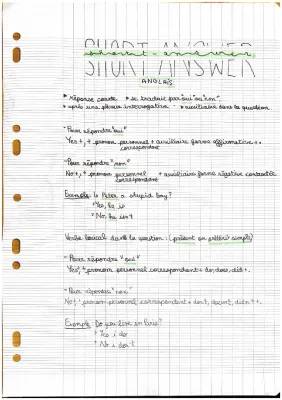 SHORT ANSWER
short - answer
ANGLAIS
* réponse courte * se traduit par "oui" ou "non".
* après une phrase interrogative - * auxiliaire dans la question
- Pour répondre "oui"
Yes +, + pronom personnel + auxiliaire forme affirmative + .
correspondant
- Pour répondre "non"
No +, + pronom personnel + auxiliaire forme négative contractée
correspondant
Exemple: Is Peter a stupid boy?
* Yes, he is
* No, he isn't
Verbe lexical dans la question : (présent ou prétérit simple)
- Pour répondre "oui"
Yes, + pronom personnel correspondant + do, does, did + .
- Pour répondre "non"
No, + pronom personnel correspondant + don't, doesn't, didn't + .
Exemple: Do you live in Paris?
* Yes i do
* No i don't